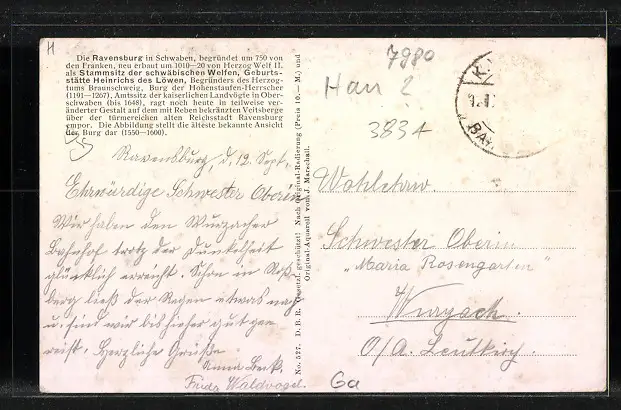 H
Die Ravensburg in Schwaben, begründet um 750 von
den Franken, neu erbaut um 1010—20 von Herzog Welf II.
als Stammsitz der schwäbischen Welfen, Geburts-
stätte Heinrichs des Löwen, Begründers des Herzog-
tums Braunschweig, Burg der Hohenstaufen-Herrscher
(1191—1267), Amtssitz der kaiserlichen Landvögte in Ober-
schwaben (bis 1648), ragt noch heute in teilweise ver-
änderter Gestalt auf dem mit Reben bekränzten Veitsberge
über der türmereichen alten Reichsstadt Ravensburg
empor. Die Abbildung stellt die älteste bekannte Ansicht
der Burg dar (1550—1600).
Ravensburg, d. 12. Sept.
Ehrwürdige Schwester Oberin
Wir haben den Wurzacher
Bahnhof trotz der Dunkelheit
glücklich erreicht. Schon in Roß-
berg ließ der Regen etwas nach
u. sind wir bis hieher gut ge-
reist. Herzliche Grüße
Anna
Frida Waldvogel.
No. 527. D. B. R. Gesetzl. geschützt! Nach Original-Radierung (Preis 10.— M.) und
Original-Aquarell von J. Marschall.
7980
Han 2
3834
K.
BA
Wohlehrw.
Schwester Oberin
„Maria Rosengarten"
Wurzach.
O/A. Leutkirch.
Ga